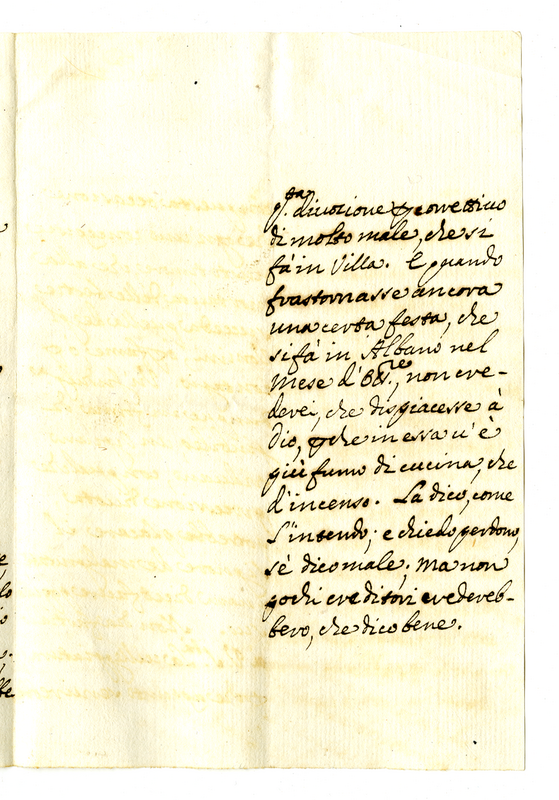 q.ta divozione p correttivo
di molto male, che si
fà in Villa. E quando
frastornasse ancora
una certa festa, che
si fà in Albano nel
Mese d'8bre, non cre-
derei, che dispiacesse à
Dio, pche in essa v'è
più fumo di cucina, che
d'incenso. La dico, come
l'intendo; e chiedo perdono,
sè dico male; ma non
pochi creditori credereb-
bero, che dico bene.